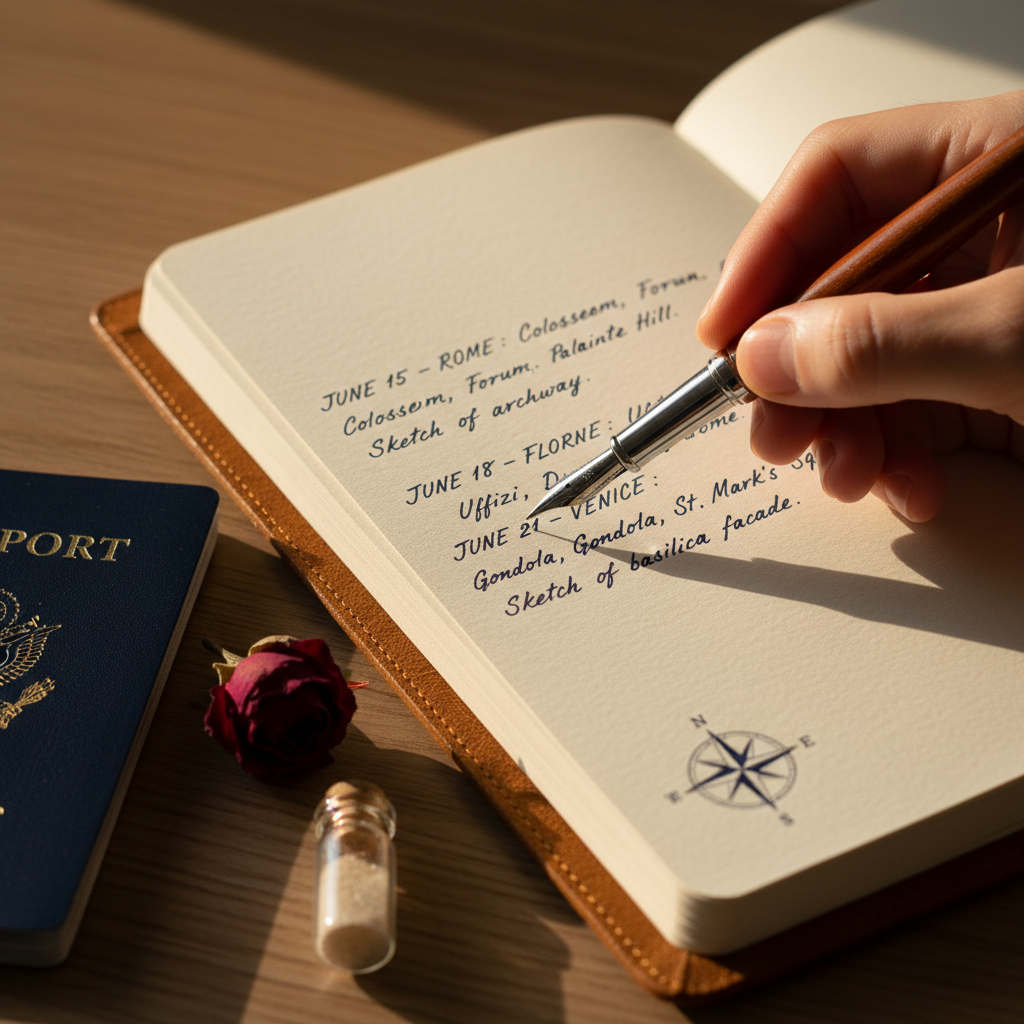 JUNE 15 – ROME: Colosseem, Forum,
Colosserm, Forum, Palainte Hill.
Sketch of archway.
JUNE 18 – FLORNE:
Uffizi,
JUNE 21 – VENICE:
Gondola, Gondola, St. Mark's
Sketch of basilica facade.
PORT
N
E
S